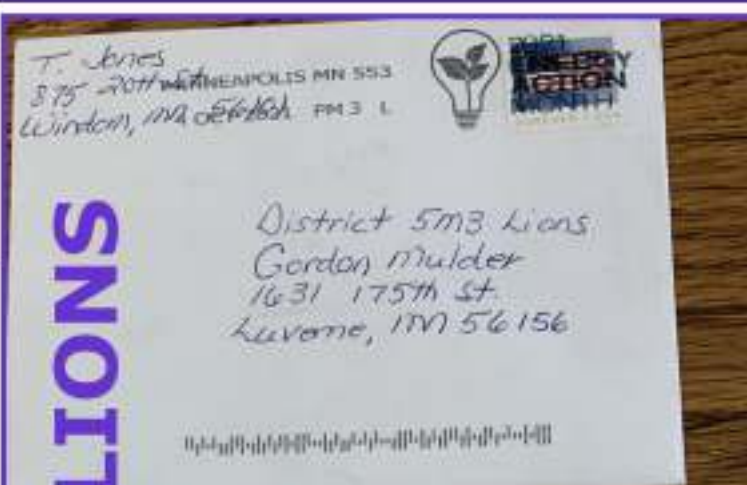 T. Jones
875 20th
MINNEAPOLIS MN 553
Windom, MN
PM 3 L
2021
ENERGY
ACTION
MONTH
District 5M3 Lions
Gordon Mulder
1631 175th St.
Luverne, MN 56156
LIONS